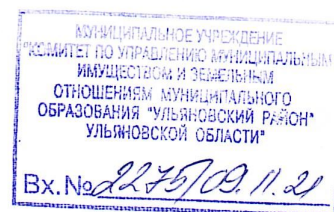 МУНИЦИПАЛЬНОЕ УЧРЕЖДЕНИЕ
"КОМИТЕТ ПО УПРАВЛЕНИЮ МУНИЦИПАЛЬНЫМ
ИМУЩЕСТВОМ И ЗЕМЕЛЬНЫМ
ОТНОШЕНИЯМ МУНИЦИПАЛЬНОГО
ОБРАЗОВАНИЯ "УЛЬЯНОВСКИЙ РАЙОН"
УЛЬЯНОВСКОЙ ОБЛАСТИ"
Вх. № 2275/09.11.21